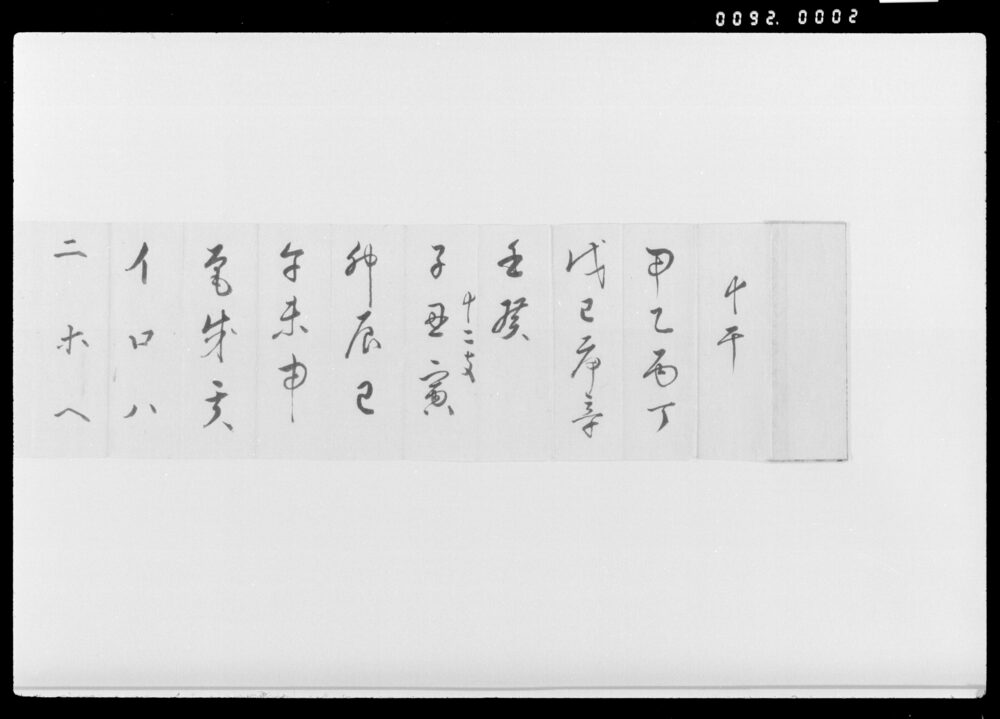 0092. 0002
十干
甲乙丙丁
戊己庚辛
壬癸
十二支
子丑寅
卯辰巳
午未申
酉戌亥
イロハ
ニホヘ